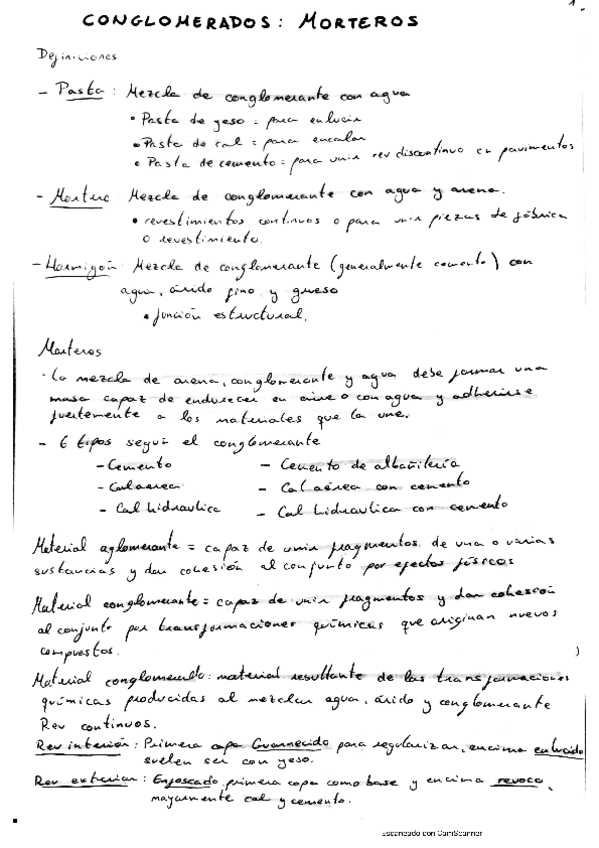 1
CONGLOMERADOS: MORTEROS
Definiciones
- Pasta: Mezcla de conglomerante con agua
• Pasta de yeso = para enlucir
• Pasta de cal = para encalar
• Pasta de cemento = para unir rev discontinuo en pavimentos
- Mortero Mezcla de conglomerante con agua y arena.
• revestimientos continuos o para unir piezas de fábrica
o revestimiento.
- Hormigón Mezcla de conglomerante (generalmente cemento) con
agua, árido fino y grueso
• función estructural.
Morteros
· La mezcla de arena, conglomerante y agua debe formar una
masa capaz de endurecer en aire o con agua y adherirse
fuertemente a los materiales que la une.
- 6 tipos según el conglomerante
- Cemento - Cemento de albañilería
- Cal aerea - Cal aérea con cemento
- Cal hidraulica - Cal hidraulica con cemento
Material aglomerante = capaz de unir fragmentos de una o varias
sustancias y dan cohesión al conjunto por efectos físicos
Material conglomerante = capaz de unir fragmentos y dan cohesión
al conjunto por transformaciones químicas que originan nuevos
compuestos.
Material conglomerado: material resultante de las transformaciones
químicas producidas al mezclar agua, árido y conglomerante
Rev continuos.
Rev interior: Primera capa Guarnecido para regularizar, encima enlucido
suelen ser con yeso.
Rev exterior: Enfoscado, primera capa como base y encima revoco,
mayormente cal y cemento.
Escaneado con CamScanner